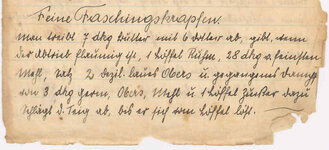 Feine Faschingskrapfen.
Man treibt 7 dkg Butter mit 6 Dotter ab, gibt, wenn
der Abtrieb flaumig ist, 1 Löffel Ruhm, 28 dkg feinsten
Mehl, Salz, 2 dezil. laues Obers u. gegangenes Dampfl
von 3 dkg Germ, Obers, Mehl u. 1 Löffel Zucker dazu
schlägt d. Teig ab, bis er sich vom Löffel löst.